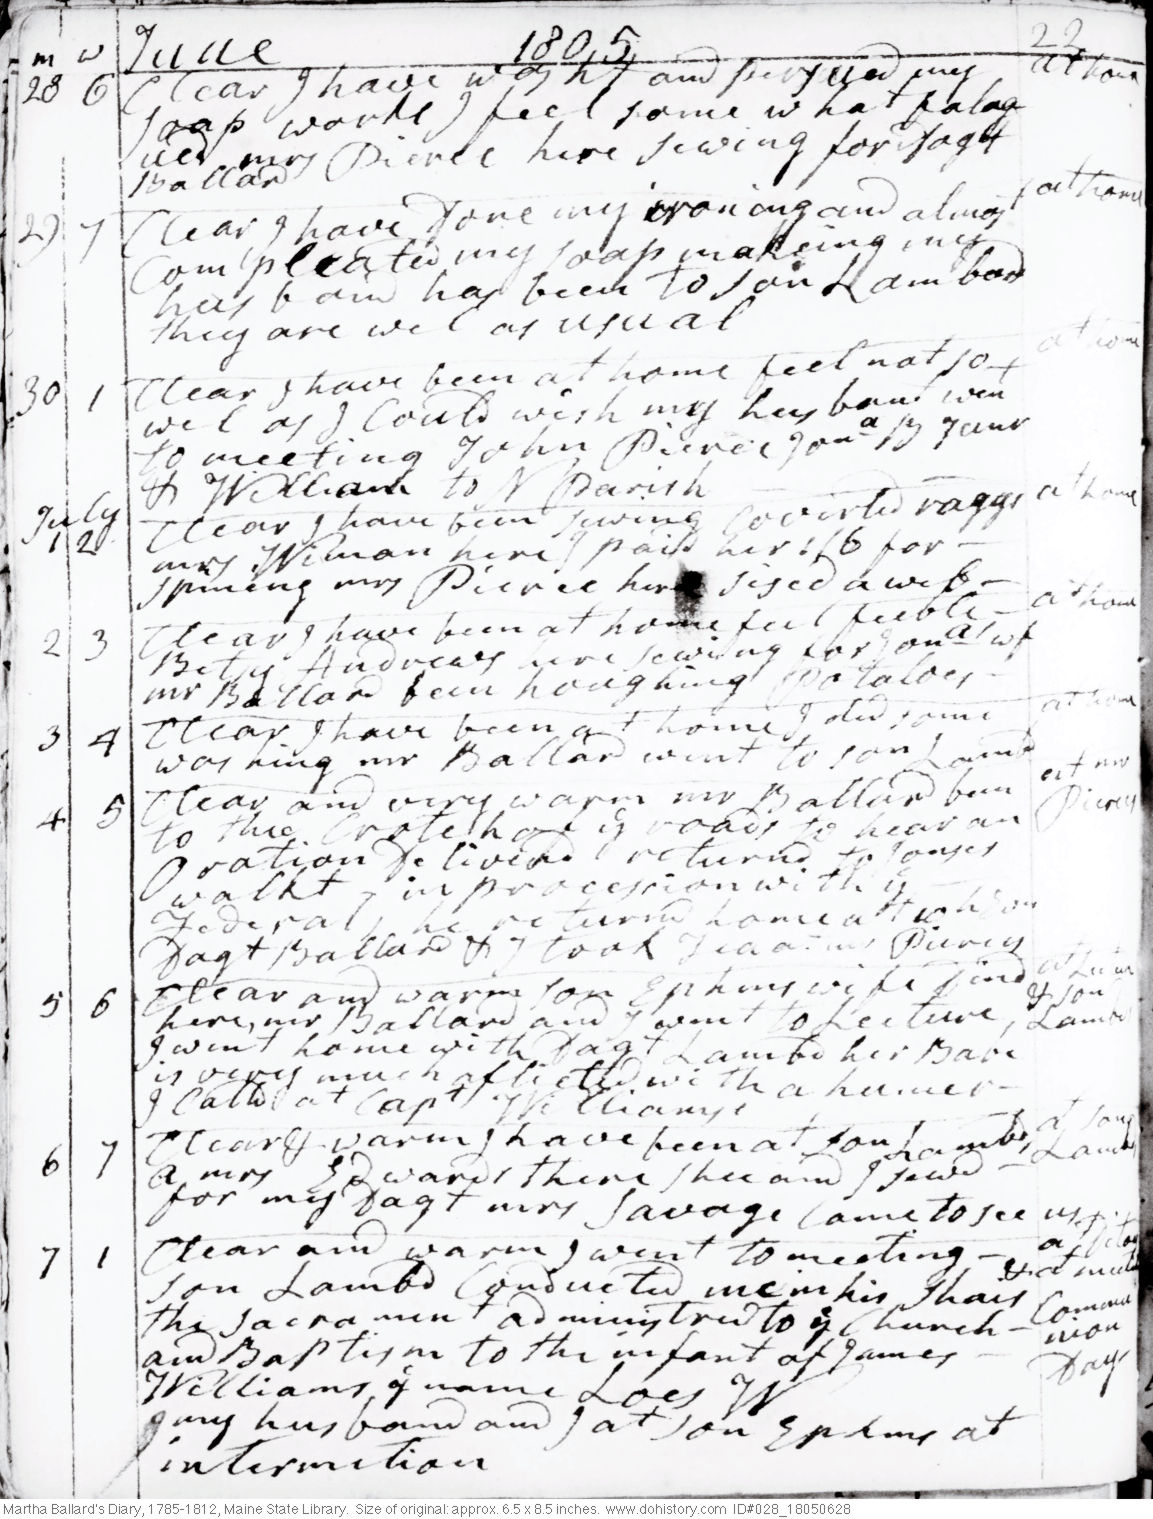 m w June 1805 22
28 6 Clear I have washt and persued my at home
soap works I feel some what fatag
ued mrs Pierce here sewing for Dagt
Ballard
29 7 Clear I have Done my ironing and almos at home
Compleated my soap makeing my
husband has been to son Lambards
they are wel as usual
30 1 Clear I have been at home feel not so at home
wel as I Could wish my husband went
to meeting John Pierce Jona B Junr
& William to N Parish
July
1 2 Clear I have been sewing Coverled raggs at home
mrs Wiman here I paid her 1/6 for
spining mrs Pierce here sised a web
2 3 Clear I have been at home feel feeble at home
Betsy Andrews here sewing for Jonas wf
mr Ballard been houghing Potatoes
3 4 Clear I have been at home I did some at home
washing mr Ballard went to son Lambd
4 5 Clear and very warm mr Ballard been at mr
to the Crotch of ye roads to hear an Pierces
Oration Delivrd returnd to Joneses
walkt in procession with ye
Federal he returnd home at
Dagt Ballard & I took Tea at mr Pierces
5 6 Clear and warm son Ephms wife Dind at Lectur
here, mr Ballard and I went to Lecture, & son
I went home with Dagt Lambd her Babe Lambd
is very much aflicted with a humer
I Calld at Capt Williams
6 7 Clear & warm I have been at son Lambds at sons
a mrs Edwards there shee and I sewd Lambds
for my Dagt mrs Savage Came to see us
7 1 Clear and warm I went to meeting at Ditto
son Lambd Conducted me in his Shais & at meetn
the sacrament administred to ye Church Commu
and Baptism to the infant of James nion
Williams, ye name Loes W Day
my husband and I at son Ephms at
intermition
Martha Ballard's Diary, 1785-1812, Maine State Library. Size of original: approx. 6.5 x 8.5 inches. www.dohistory.com ID#028_18050628